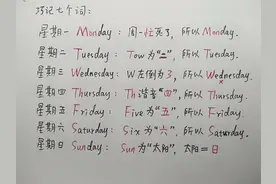 巧记七个词:
星期一 Monday: 周一忙死了, 所以 Monday.
星期二 Tuesday: Tow为"二", 所以 Tuesday.
星期三 Wednesday: W左倒为3, 所以 Wednesday.
星期四 Thursday: Th谐音"四", 所以 Thursday.
星期五 Friday: Five为"五", 所以 Friday.
星期六 Saturday: Six为"六", 所以 Saturday.
星期日 Sunday: Sun为"太阳", 太阳=日